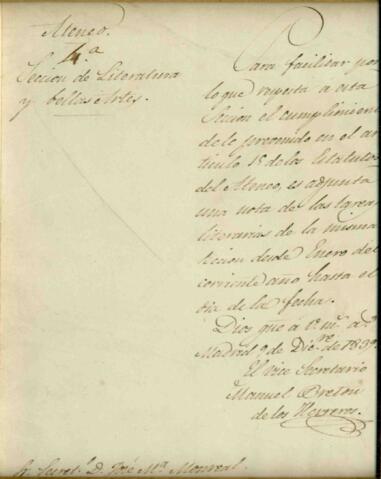 Ateneo.
4.a
Seccion de Literatura
y bellas Artes.
Para facilitar por
lo que respecta a esta
Seccion el cumplimien
de lo prevenido en el ar
ticulo 15 de los Estatuto
del Ateneo, es adjunta
una nota de las tarea
literarias de la misma
seccion desde Enero del
corriente año hasta el
dia de la fecha.
Dios gue á V. m.s a.s
Madrid 9 de Dic.re de 1839.
El Vice Secretario
Manuel Breton
de los Herreros.
Sr. Secret.o D. José M.a Monreal.